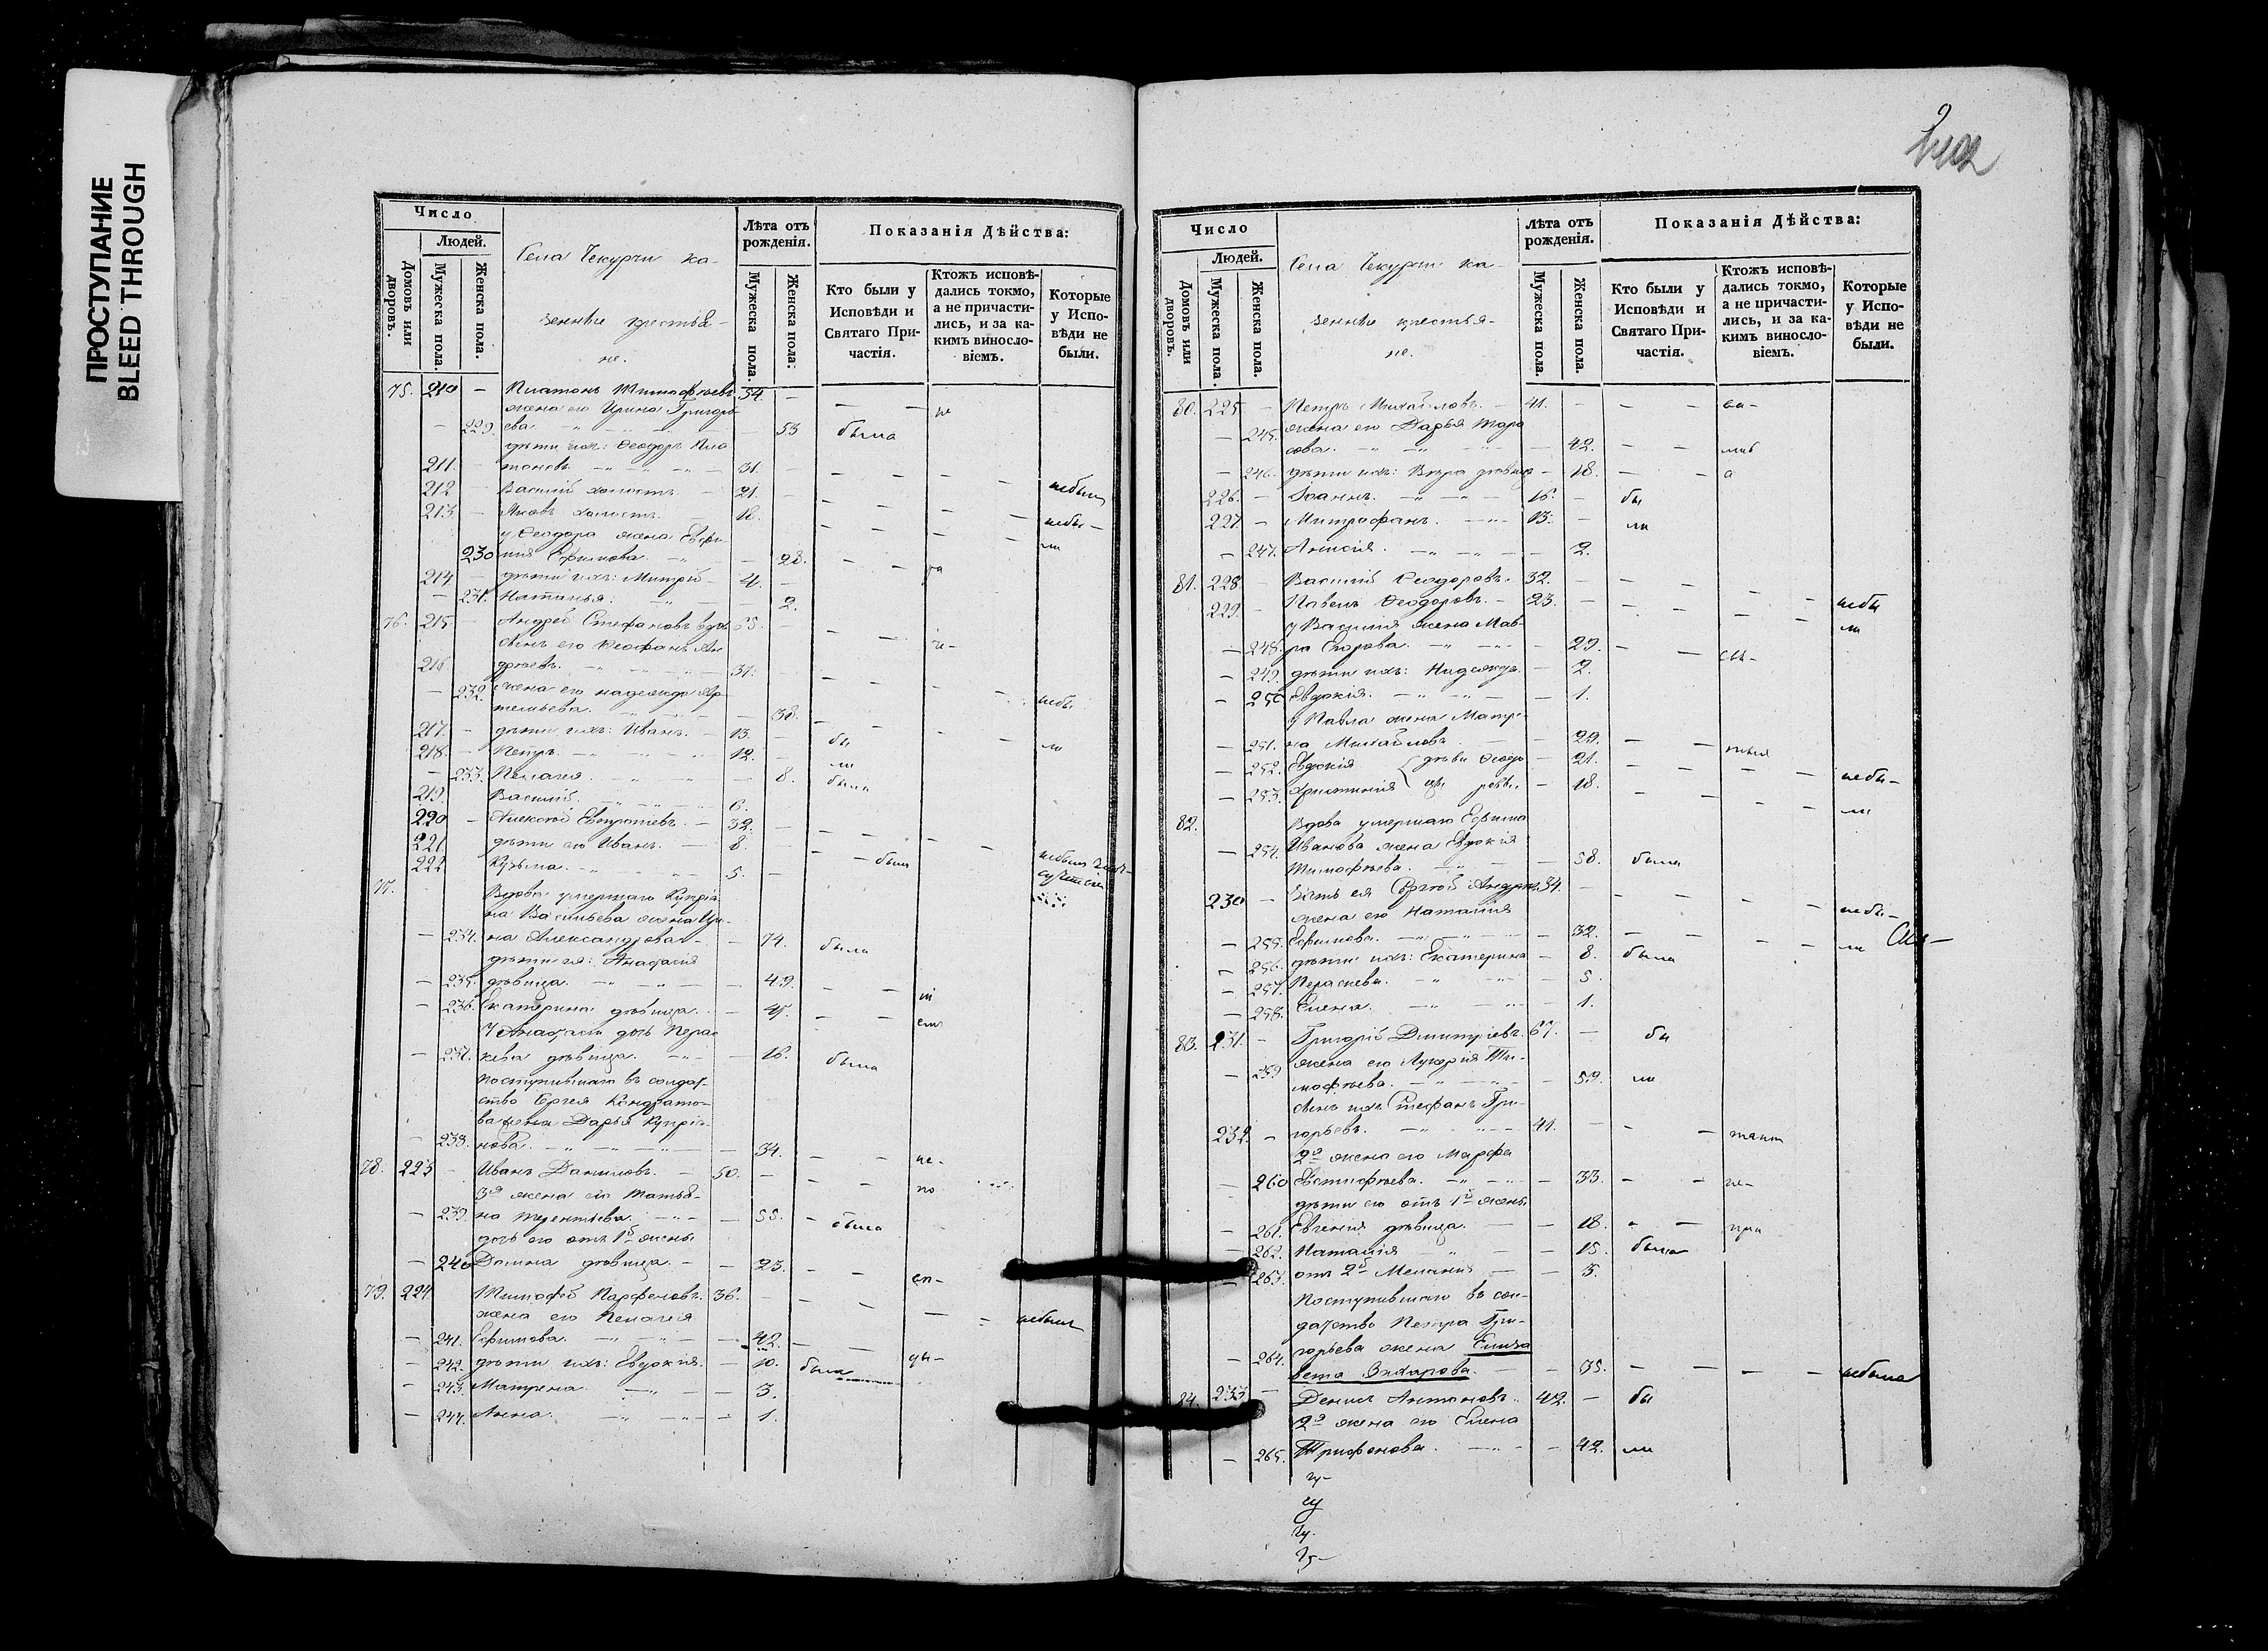 ПРОСТУПАНИЕ
BLEED THROUGH
Число
Людей.
Домовъ или дворовъ.
Мужеска пола.
Женска пола.
Села Чекурчи ка-
зенные крестья-
не.
Лѣта отъ рожденія.
Мужеска пола.
Женска пола.
Показанія Дѣйства:
Кто были у Исповѣди и Святаго Причастія.
Ктожъ исповѣдались токмо, а не причастились, и за какимъ винословіемъ.
Которые у Исповѣди не были.
75. 210 — Платонъ Тимофѣевъ 54. —
жена его Ирина Григорь
— 229. ева. — 53 была
дѣти ихъ: Ѳеодоръ Пла
211. — тоновъ 31. —
212 — Василій холостъ 21. — небыл
213. — Яковъ холостъ. 18. — небы-
у Ѳеодора жена Евфи ли
230 мія Ефимова. — 28.
214. — дѣти ихъ: Митрій 4. —
— 231. Наталья. 2.
76. 215 — Андрей Стефановъ вдовъ 65. —
сынъ его Ѳеофанъ Ан
216 дреевъ. 37.
— 232. жена его Надежда Ар
темьева. — 38. небы
217. — дѣти ихъ: Иванъ. 13. — бы ли
218. — Петръ. 12. — ли
— 233. Пелагея. — 8. была
219. Василій. 6.
220 — Алексѣй 32. —
221 дѣти его Иванъ. 8.
222 Кузьма. 5. —
77. Вдова умершаго Купрія
на Васильева жена Ири-
— 234. на Александрова — 74. была
дѣти ея: Анафасія
— 235. дѣвица. — 49.
— 236. Екатерина дѣвица. — 45.
У Анафасіи дочь Парас
— 237. кева дѣвица. — 16. была
поступившаго въ солдат-
ство Сергея Кондрато-
ва жена Дарья Купрія-
— 238. нова. — 34.
78. 223 — Иванъ Даниловъ. — 50. —
3я жена его Татья-
— 239. на Терентьева. — 55. — была
дочь его отъ 1й жены
— 240 Домна дѣвица. — — 23.
79. 224 Тимофей Парфеновъ. 36. —
жена его Пелагея небыл
— 241. Ефимова. — 42. —
— 242. дѣти ихъ: Евдокія. — 10. была
— 243. Матрена. — 3.
— 244. Анна. — 1.
Число
Людей.
Домовъ или дворовъ.
Мужеска пола.
Женска пола.
Села Чекурчи ка-
зенные крестья-
не.
Лѣта отъ рожденія.
Мужеска пола.
Женска пола.
Показанія Дѣйства:
Кто были у Исповѣди и Святаго Причастія.
Ктожъ исповѣдались токмо, а не причастились, и за какимъ винословіемъ.
Которые у Исповѣди не были.
80. 225. — Петръ Михайловъ. — 41. —
— 245. жена его Дарья Тара
сова. — 42.
— 246. дѣти ихъ: Вѣра дѣвица — 18.
226. — Іоаннъ. 16. — бы
227 — Митрофанъ. 13. — ли
— 247. Анисія. — 2.
81. 228 — Василій Ѳеодоровъ. 32. —
229. — Павелъ Ѳеодоровъ. — 23. — небы
у Василія жена Мав- ли
— 248. ра Егорова. — 29. —
— 249. дѣти ихъ: Надежда. — 2.
— 250 Евдокія. — 1.
у Павла жена Матре-
— 251. на Михайлова — 29. —
— 252. Евдокія дѣвки Ѳеодо — 21. небы-
— 253. Христинія ровы — 18. ли
82. Вдова умершаго Ефима
— 254. Иванова жена Евдокія
Тимофѣева. — 58. была
230 — Зять ея Сергей Андреев. 34. —
жена его Наталія небы-
— 255. Ефимова. — 32. — ли
— 256. дѣти ихъ: Екатерина — 8. была
— 257. Параскева. 5.
— 258. Елена. 1.
83. 231. — Григорій Димитріевъ. 67. — бы
— 259 жена его Лукерія Ти-
мофѣева. — 59. ли
сынъ ихъ Стефанъ Гри-
232. — горьевъ. 41. —
2я жена его Марфа
— 260 Евстифѣева. — 33. —
дѣти его отъ 1й жены
— 261. Евгенія дѣвица. — 18.
— 262. Наталія — 15. была
— 263. отъ 2й Меланія — 3.
Поступившаго въ сол-
датство Петра Гри-
— 264. горьева жена Елиза
вета Захарова. — 35. — небыла
84. 233 — Денисъ Антоновъ. 42. — бы
2я жена его Елена
— 265. Трифонова. — 42. ли